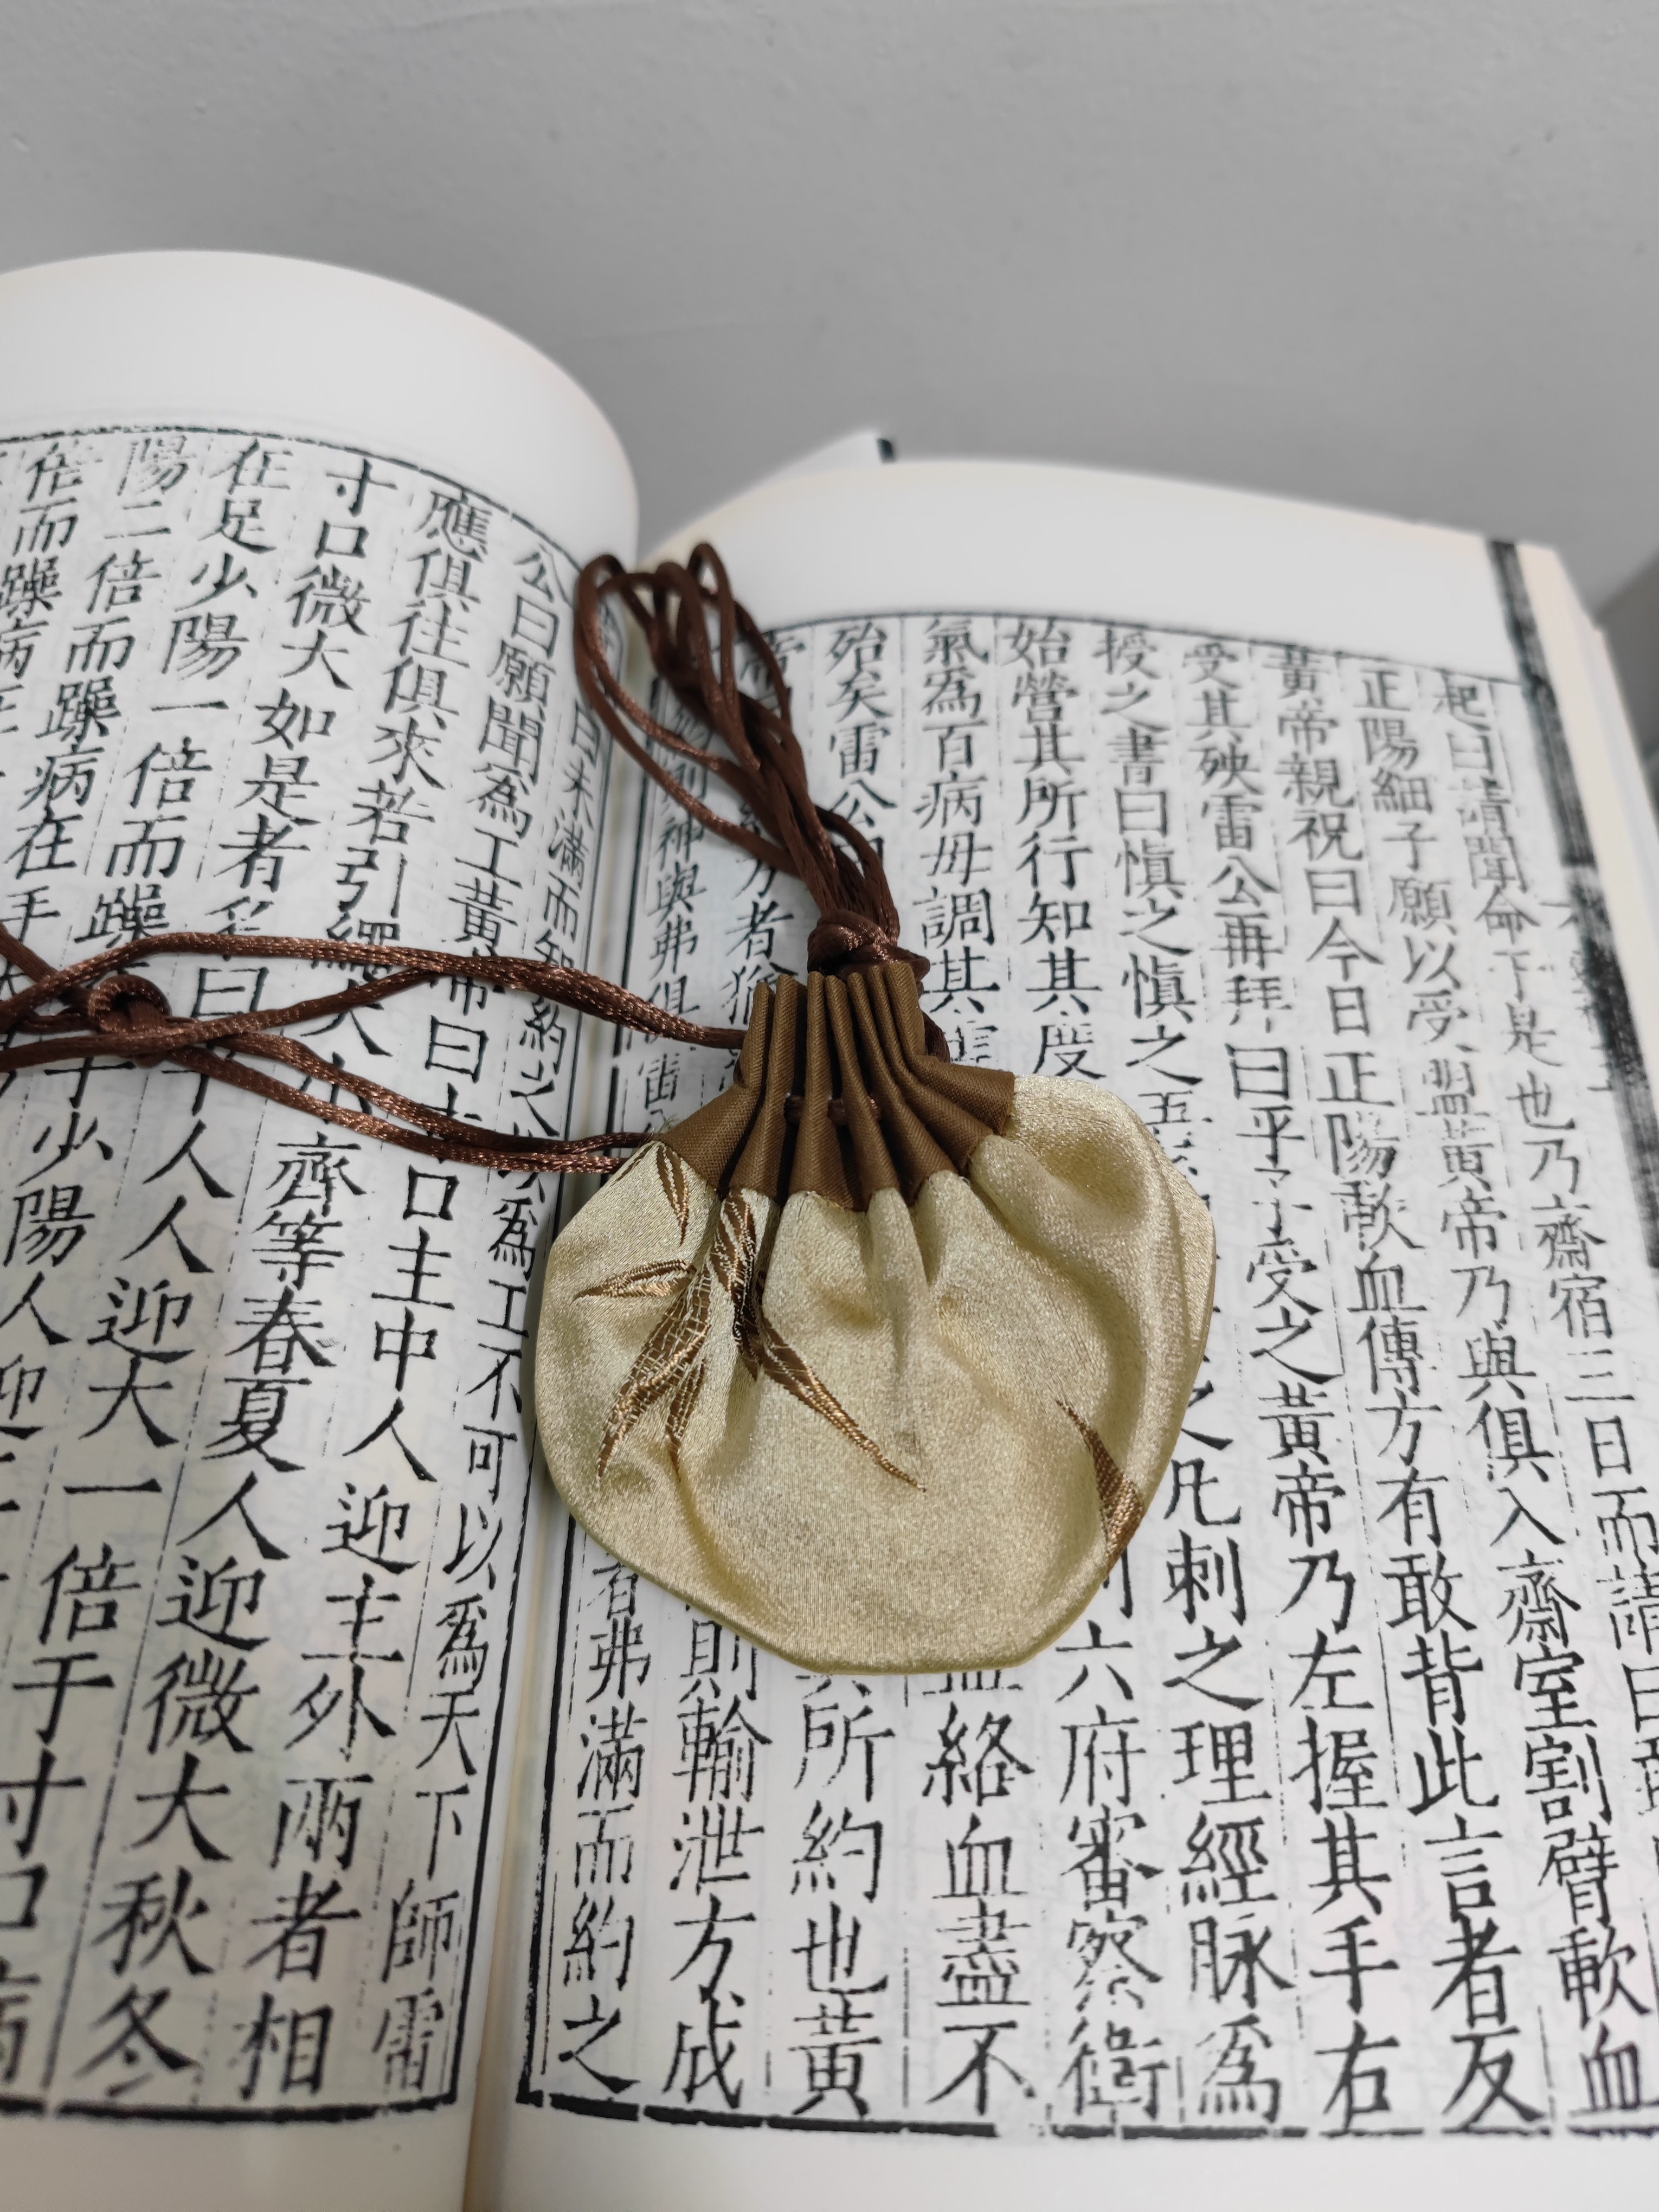 而請曰
起曰請聞命于是也乃齋宿三日
正陽細子願以受盟黃帝乃與俱入齋室割臂歃血
黃帝親祝曰今日正陽歃血傳方有敢背此言者反
受其殃雷公再拜曰
受之黃帝乃左握其手右
授之書曰慎之慎之
凡刺之理經脉為
始營其所行知其度
六府審察衛
氣為百病母調其
血絡血盡不
殆矣雷公曰
所約也黃
帝
方者猶
則輸泄方成
神與弗俱雷
弗滿而約之
曰未滿而知約之以為工不可以為天下師雷
公曰願聞為工黃帝曰寸口主中人迎主外兩者相
應俱往俱來若引繩大小齊等春夏人迎微大秋冬
寸口微大如是者名曰平人人迎大一倍于寸口病
在足少陽一倍而躁
手少陽人迎二
陽二倍而躁病在
倍而躁病在